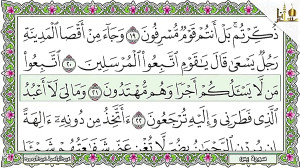 ذُكِّرْتُم بَلْ أَنتُمْ قَوْمٌ مُّسْرِفُونَ ١٩ وَجَاءَ مِنْ أَقْصَا الْمَدِينَةِ
رَجُلٌ يَسْعَىٰ قَالَ يَٰقَوْمِ اتَّبِعُوا الْمُرْسَلِينَ ٢٠ اتَّبِعُوا
مَن لَّا يَسْـَٔلُكُمْ أَجْرًا وَهُم مُّهْتَدُونَ ٢١ وَمَا لِيَ لَا أَعْبُدُ
الَّذِي فَطَرَنِي وَإِلَيْهِ تُرْجَعُونَ ٢٢ ءَأَتَّخِذُ مِن دُونِهِ ءَالِهَةً
سورة يس